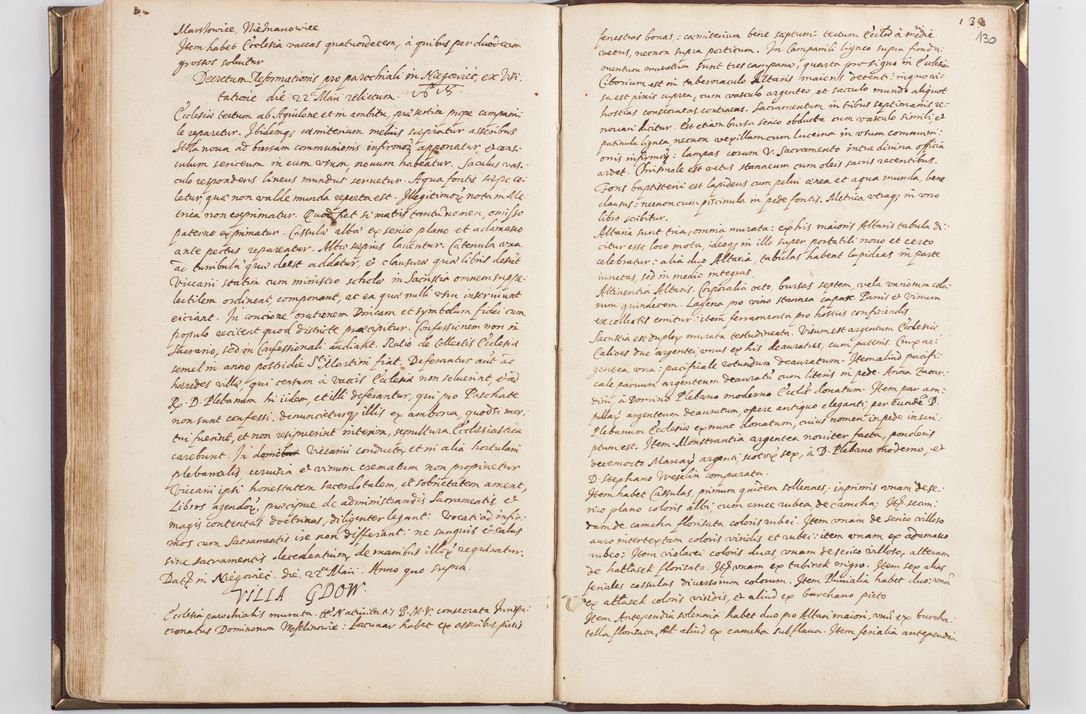 Marszowice, Nieznanowice
Item habet Ecclesia vaccas quatuordecem, à quibus per duodecem
grossos soluitur
Decretum Reformationis pro parochiali in Niegowic, ex Visi-
tatione die 22 Maii relictum.
Ecclesia tectum ab Aquilone et in ambitu, præsertim prope campani-
le reparetur. Ibidemq. cæmiterium melius sæpiatur asseribus
Stola noua ad bursam communionis infirmor. apponatur, et vas-
culum sericeum in eum vsum nouum habeatur. Saculus vas-
culo respondens lineus mundus seruetur. Aqua fontis sæpe co-
letur, quæ non valde munda reperta est. Illegitimor. nota in Me-
trica non exprimatur. matris tantu nomen, omisso
paterno exprimatur. Casula alba ex serico plano et adamasco
ante pectus reparetur. Albæ sæpius lauentur. Catenula vna
ad turribulu quæ deest addatur, et clausuræ quæ libris desit
Vicarii statim cum ministro scholæ in Sacristia omnem suppe-
lectilem ordinent, componant, ac ea quæ nulli vsui inseruiunt
eiiciant. In concione orationem Dnicam et symbolum fidei cum
populo recitent quod districte præcipitur. Confessionem non in
Sacrario, sed in Confessionali audiant. Ratio de Collectis Ecclesiæ
semel in anno postridie S. Martini fiat. Deferantur aut. ac
hæredes villæ, qui censum à vaccis Ecclesiæ non soluerint, et ad
R. D. Plebanum hi iidem, et illi deferantur, qui pro Paschate
non sunt confessi, denuncieturq. illis ex ambona, quod si mor-
tui fuerint, et non resipuerint interim, sepultura Ecclesiastica
carebunt. In Vicarii conductor, et in alia hortulani
plebanalis, ceruisia et vinum crematum non propinetur
Vicarii ipsi honestatem sacerdotalem, et sobrietatem ament,
Libros agendor. præcipue de administrandis Sacramentis et
magis contentas doctrinas, diligenter legant. Vocati ad infir-
mos cum Sacramentis ire non differant: ne sanguis et salus
sine sacramentis decedentium de manibus illor. requiratur.
Dat. in Niegowic. die 22 Maii. Anno quo supra.
VILLA GDOW.
Ecclesia parochialis murata, tt. Natiuitatis B. M. V. consecrata Iurispa-
tronatus Dominorum : Lacunar habet ex asseribus pictis
130
fenestras bonas: cæmiterium bene septum: tectum Ecclesiæ à medio
vetus, necnon supra porticum. In Campanili ligneo supra funda-
mentum muratum sunt tres campanæ, quarta pro signo in Ecclesia.
Ciborium est in tabernaculo Altaris maioris decenti: in quo vi-
sa est pixis cuprea, cum vasculo argenteo, et sacculo mundo aliquot
hostias consecratas continens. Sacramentum in tribus septimanis re-
nouari dicitur. Est etiam bursa serico obducta cum vasculo simili, et
patinula lignea, necnon vexillum cum lucerna in vsum communi-
onis infirmor.: lampas coram V. Sacramento intra diuina officia
ardet. Chrismale est vetus stanneum cum oleis sacris recentibus.
Fons baptisterii est lapideus cum pelui ænea et aqua munda, bene
clausus: necnon cum piscinula in pede fontis. Metrica vtraq. in vno
libro scibitur.
Altaria sunt tria, omnia murata: ex his maioris Altaris tabula di-
citur esse loco mota, ideoq. in illo super portatili nouo et certo
celebratur: alia duo Altaria, tabulas habent lapideas in parte
iunctas, sed in medio integras.
Attinentia Altaris. Corporalia octo, bursas septem, vela varior. colo-
rum quindecem. Lagena pro vino stannea capax. Panis et Vinum
ex collectis emitur: item ferramenta pro hostiis conficiendis
Sacristia est duplex murata testudineata. Visum est argentum Ecclesiæ
Calices duo argentei, vnus ex his deauratus, cum patenis. Crux ar-
gentea vna: pacificale rotundum deauratum. Item aliud pacifi-
cale paruum argenteum deauratu cum literis in pede: Anna Zatar-
à Domino Plebano moderno Ecclesiæ donatum. Item par am-
pullar. argenteum deauratum, opere antiquo eleganti, per eunde D.
Plebanum Ecclesiæ ex nunt donatum, cuius nomen in pede inscri-
ptum est. Item Monstrantia argentea nouiter facta, ponderis
decem octo Marcar. argenti, scotor. sex, à D. Plebano moderno, et
D. Stephano Weselin comparata.
Item habet Casulas, primum quidem sollennes: inprimis vnam de se-
rico plano coloris albi, cum cruce rubea de camcha: It. secun-
dam de camcha floritata coloris rubei. Item vnam de serico villoso
auro intertextam coloris viridis et rubei: item vnam ex adamasco
rubeo: Item violacei coloris duas vnam de serico villoso, alteram
de hatlasek floritato. It. vnam ex tabinek nigro. Item sex alias
feriales casulas diuersorum colorum. Item Pluuialia habet duo, vnu
ex attasek coloris viridis, et aliud ex burchano picto
Item Antependia solennia habet duo pro Altari maiori, vnu ex burcha-
tella, floritata, Alt. aliud ex camcha subflaua. Item ferialia antependia